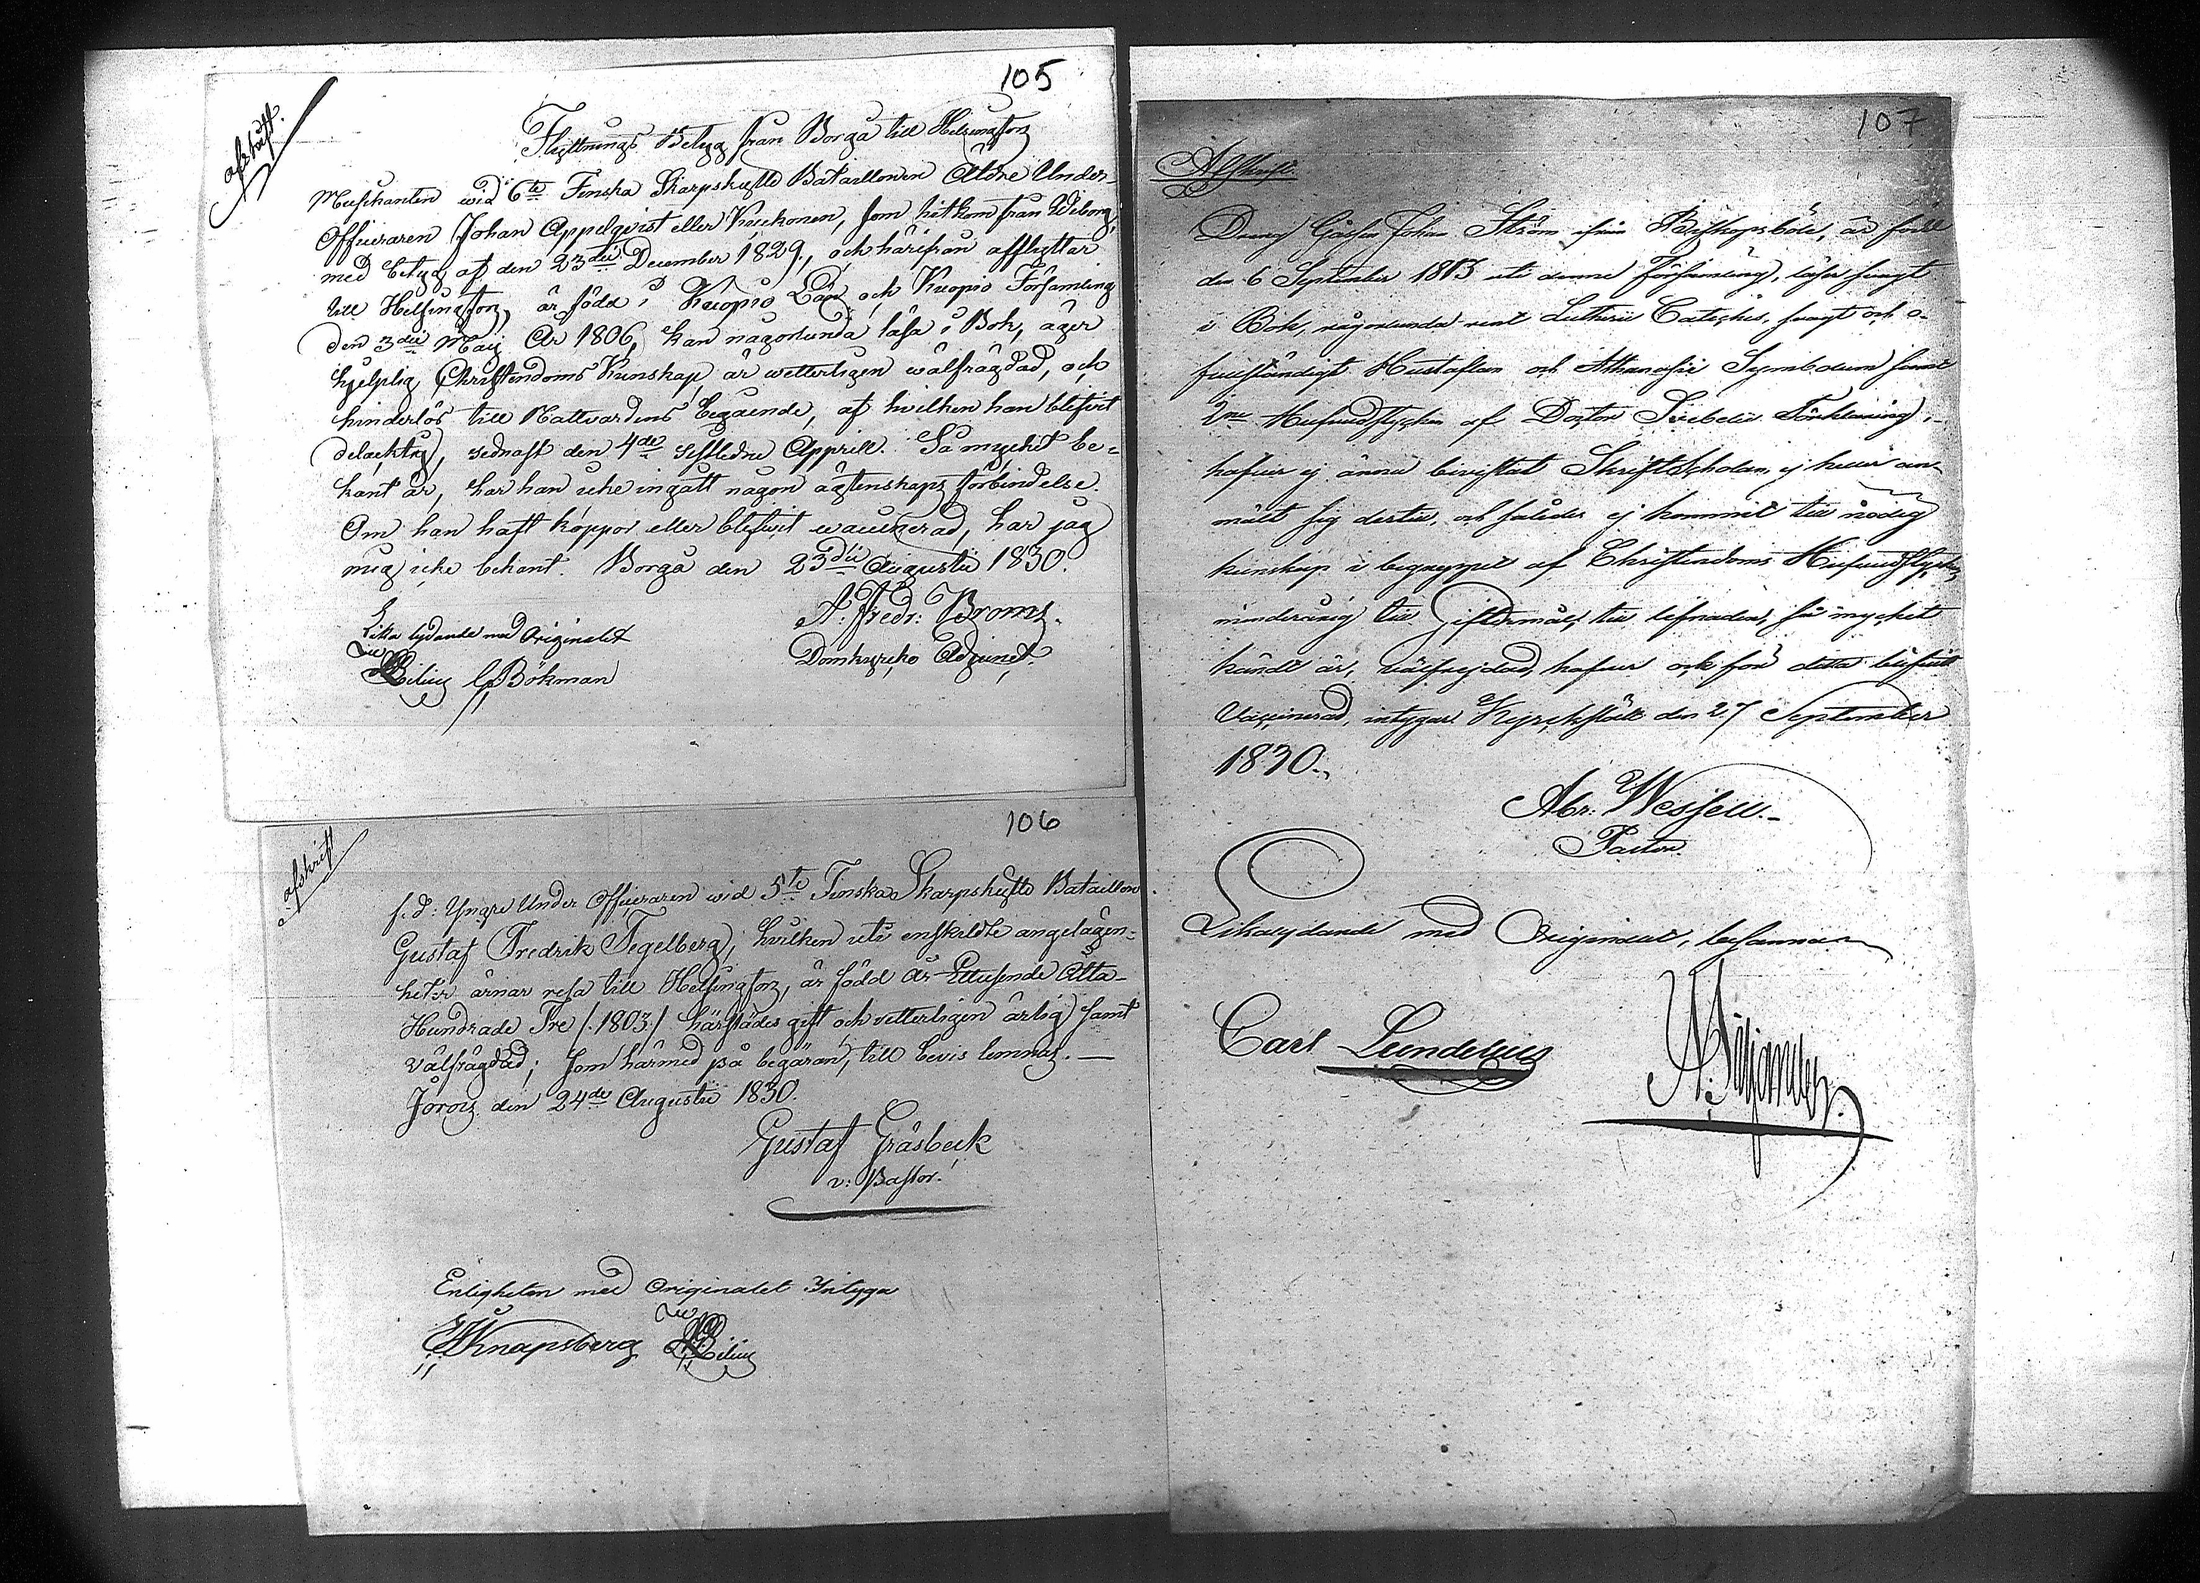 105
afskrift.
Flyttnings Betyg från Borgå till Helsingfors
Musikanten wid 6te Finska Skarpskytte Bataillonen Äldre Under-
Officeraren Johan Appelqvist eller Kuckonen, som hitkom från Wiborg,
med betyg af den 23die December 1829, och härifrån afflyttar
till Helsingfors, är född i Kuopio Län och Kuopio Församling
den 3die Maij År 1806, kan någorlunda läsa i Bok, äger
hjelplig Christendoms Kunskap, är wetterligen wälfrägdad, och
hinderlös till Nattvardens begående, af hvilken han blefvit
delacktig, sednast den 4de sistledne Appril. Så mycket be-
kant är, har han icke ingått någon ägtenskaps förbindelse.
Om han haft koppor eller blefvit vaccinerad, har jag
mig icke bekant. Borgå den 23die Augustii 1830.
A. Fredr: Broms.
Domkyrko Adjunct.
Lika lydande med Originalet
Bökman
106
afskrift
f.d: Yngre Under Officeraren wid 5te Finska Skarpskytte Bataillon
Gustaf Fredrik Tegelberg, hvilken uti enskildte angelägen-
heter ärnar resa till Helsingfors, är född år Ettusende Åtta-
Hundrade Tre /:1803:/ härstädes gift och vetterligen ärlig samt
välfrägdad; som härmed på begäran, till bevis lemnas. —
Jorois den 24de Augustii 1830.
Gustaf Gråsbeck
v: Pastor.
Enligheten med Originalet Intyga
Knapsberg
107
Afskrift.
Dräng Gåssen Johan Ström ifrån Biskopsböle, är född
den 6 September 1813 uti denna Församling, läser svagt
i Bok, någorlunda rent Lutherii Cateches, svagt och o-
fullständigt Hustaflan och Athanasii Symbolum samt
Hufvudstycken af Doctor Svebelii Förklaring,
hafver ej ännu bevistat Skriftskolan, ej heller an-
mält sig dertill, och således ej kommit till nödig
kunskap i begreppet af Christendoms Hufvudstycken,
till Giftermål, till lefnaden, så mycket
kändt är, välfrejdad, hafver ock för detta blifvit
Vaccinerad, intygar Kyrckslätt den 27 September
1830.
Abr: Wessell.
Pastor.
Likalydande med Originalet, besanna
Carl Lundelius